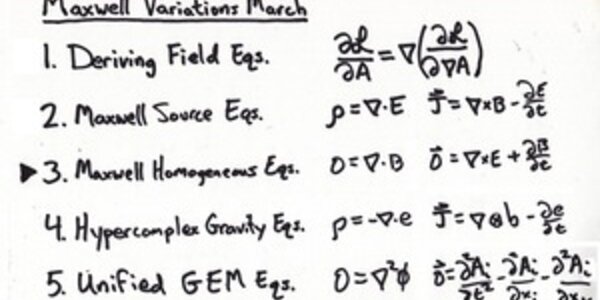 Maxwell Variations March
1. Deriving Field Eqs. ∂ℒ/∂A = ∇(∂ℒ/∂∇A)
2. Maxwell Source Eqs. ρ = ∇·E J⃗ = ∇×B - ∂E/∂t
▶3. Maxwell Homogeneous Eqs. 0 = ∇·B 0⃗ = ∇×E + ∂B/∂t
4. Hypercomplex Gravity Eqs. ρ = -∇·e J⃗ = ∇⊗b - ∂e/∂t
5. Unified GEM Eqs. 0 = ∇²ϕ